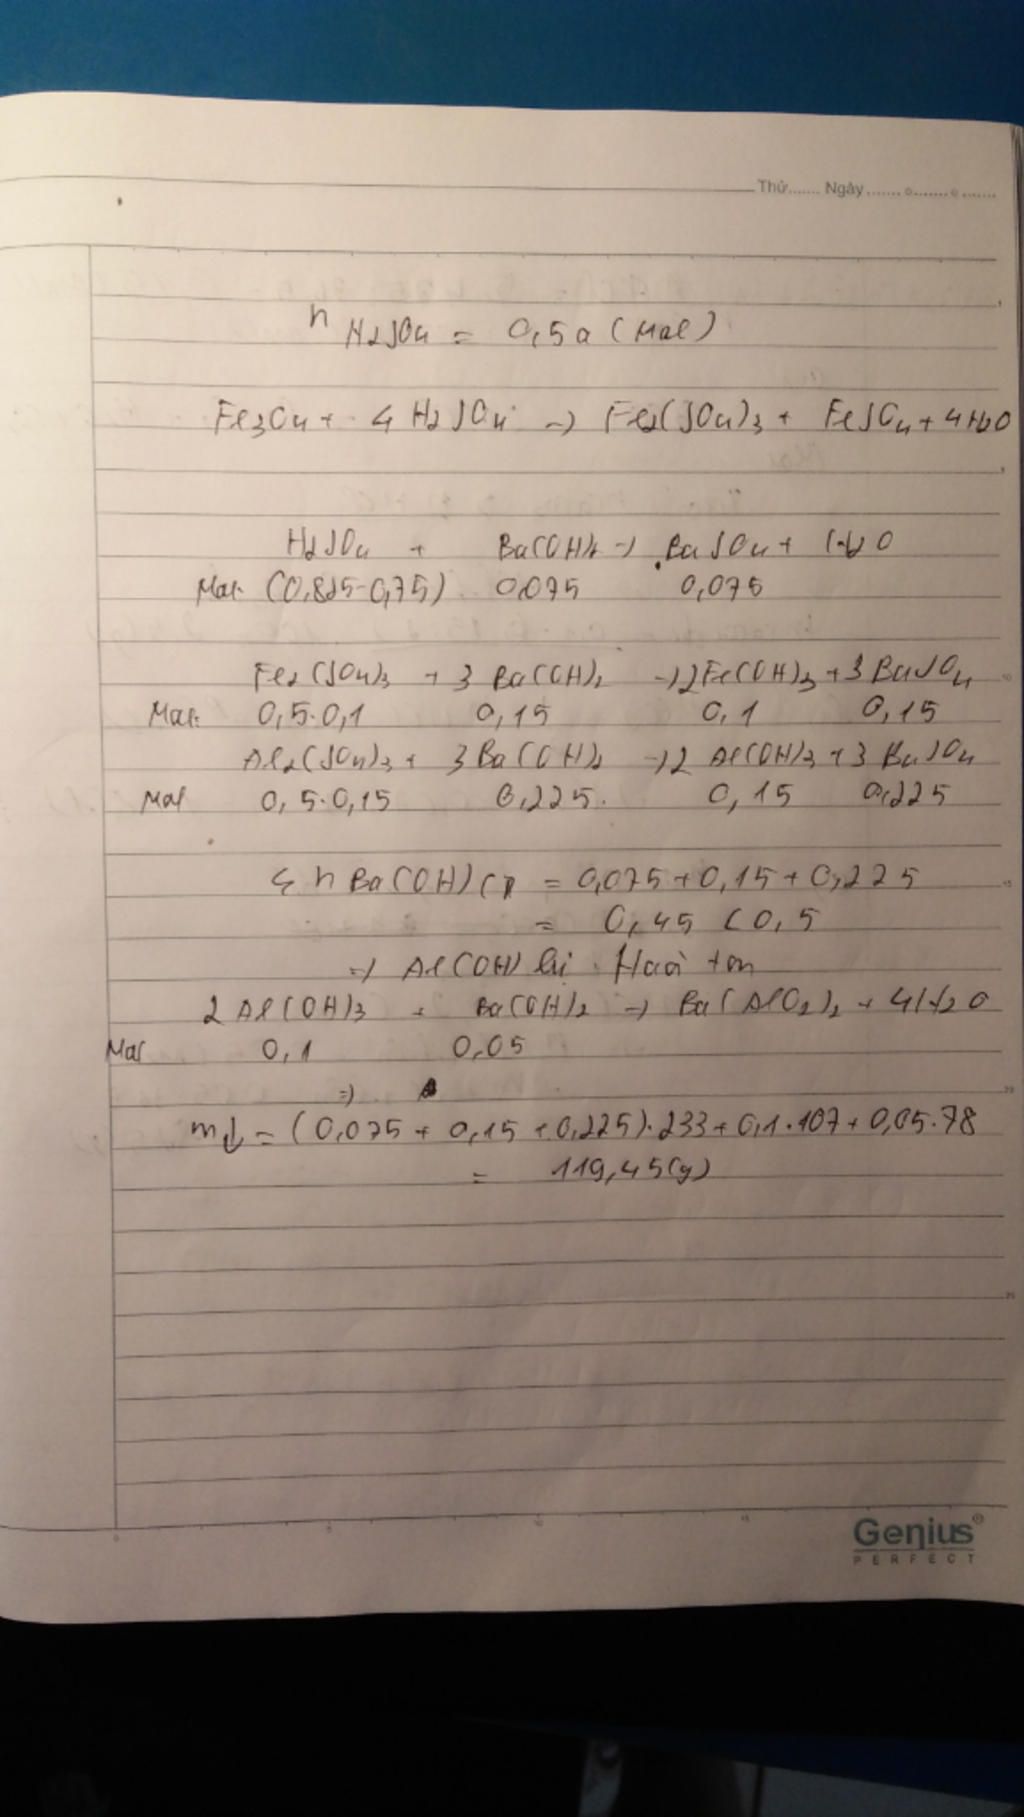 Thứ....... Ngày.......
n H2SO4 = 0,5a (mol)
Fe3O4 + 4 H2SO4 → Fe2(SO4)3 + FeSO4 + 4H2O
H2SO4 + Ba(OH)2 → BaSO4 + H2O
Mol (0,825-0,75) 0,075 0,075
Fe2(SO4)3 + 3 Ba(OH)2 → 2Fe(OH)3 + 3 BaSO4
Mol: 0,5.0,1 0,15 0,1 0,15
Al2(SO4)3 + 3 Ba(OH)2 → 2 Al(OH)3 + 3 BaSO4
Mol 0,5.0,15 0,225. 0,15 0,225
n Ba(OH) = 0,075 + 0,15 + 0,225
= 0,45 < 0,5
=> Al(OH) bị Hoà tan
2 Al(OH)3 + Ba(OH)2 → Ba(AlO2)2 + 4H2O
Mol 0,1 0,05
=>
m↓ = (0,075 + 0,15 + 0,225).233 + 0,1.107 + 0,05.78
= 119,45(g)
Genius
PERFECT